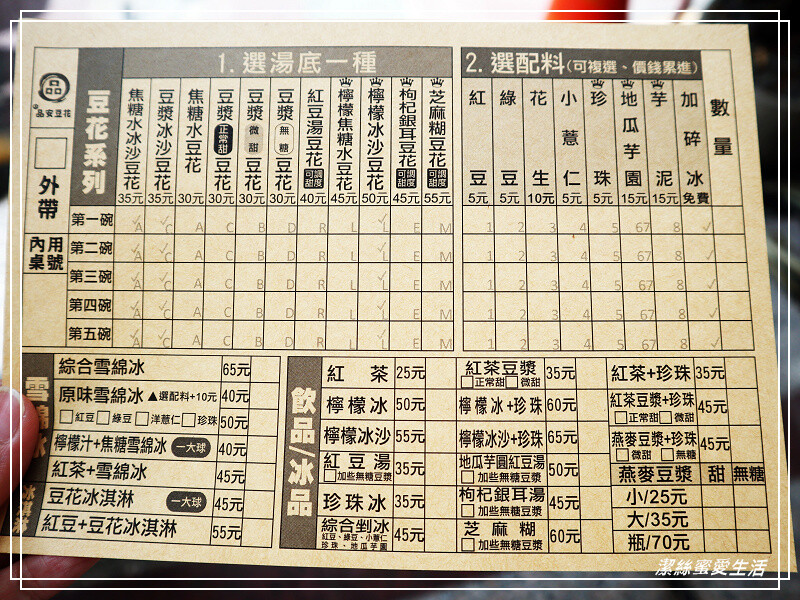 品
品安豆花
外帶
內用桌號
豆花系列
1. 選湯底一種
焦糖水冰沙豆花 35元
豆漿冰沙豆花 35元
焦糖水豆花 30元
豆漿正常甜豆花 30元
豆漿微甜豆花 30元
豆漿無糖豆花 30元
紅豆湯豆花 可調甜度 40元
檸檬焦糖水豆花 45元
檸檬冰沙豆花 50元
枸杞銀耳豆花 可調甜度 45元
芝麻糊豆花 可調甜度 55元
2. 選配料(可複選、價錢累進)
紅豆 5元
綠豆 5元
花生 10元
小薏仁 5元
珍珠 5元
地瓜芋園 15元
芋泥 15元
加碎冰 免費
數量
第一碗 A C A C B D R L L E M 1 2 3 4 5 67 8 ✓
第二碗 A C A C B D R L L E M 1 2 3 4 5 67 8 ✓
第三碗 A C A C B D R L L E M 1 2 3 4 5 67 8 ✓
第四碗 A C A C B D R L L E M 1 2 3 4 5 67 8 ✓
第五碗 A C A C B D R L L E M 1 2 3 4 5 67 8 ✓
雪綿冰
冰淇淋
綜合雪綿冰 65元
原味雪綿冰 ▲選配料+10元 40元
□紅豆 □綠豆 □洋薏仁 □珍珠 50元
檸檬汁+焦糖雪綿冰 一大球 40元
紅茶+雪綿冰 45元
豆花冰淇淋 一大球 45元
紅豆+豆花冰淇淋 55元
飲品/冰品
紅茶 25元
檸檬冰 50元
檸檬冰沙 55元
紅豆湯 □加些無糖豆漿 35元
珍珠冰 35元
綜合剉冰 紅豆、綠豆、小薏仁 珍珠、地瓜芋園 45元
紅茶豆漿 □正常甜□微甜 35元
檸檬冰+珍珠 60元
檸檬冰沙+珍珠 65元
地瓜芋圓紅豆湯 □加些無糖豆漿 50元
枸杞銀耳湯 □加些無糖豆漿 45元
芝麻糊 □加些無糖豆漿 60元
紅茶+珍珠 35元
紅茶豆漿+珍珠 □正常甜□微甜 45元
燕麥豆漿+珍珠 □微甜 □無糖 45元
燕麥豆漿 甜 無糖
小/25元
大/35元
瓶/70元
潔絲蜜愛生活